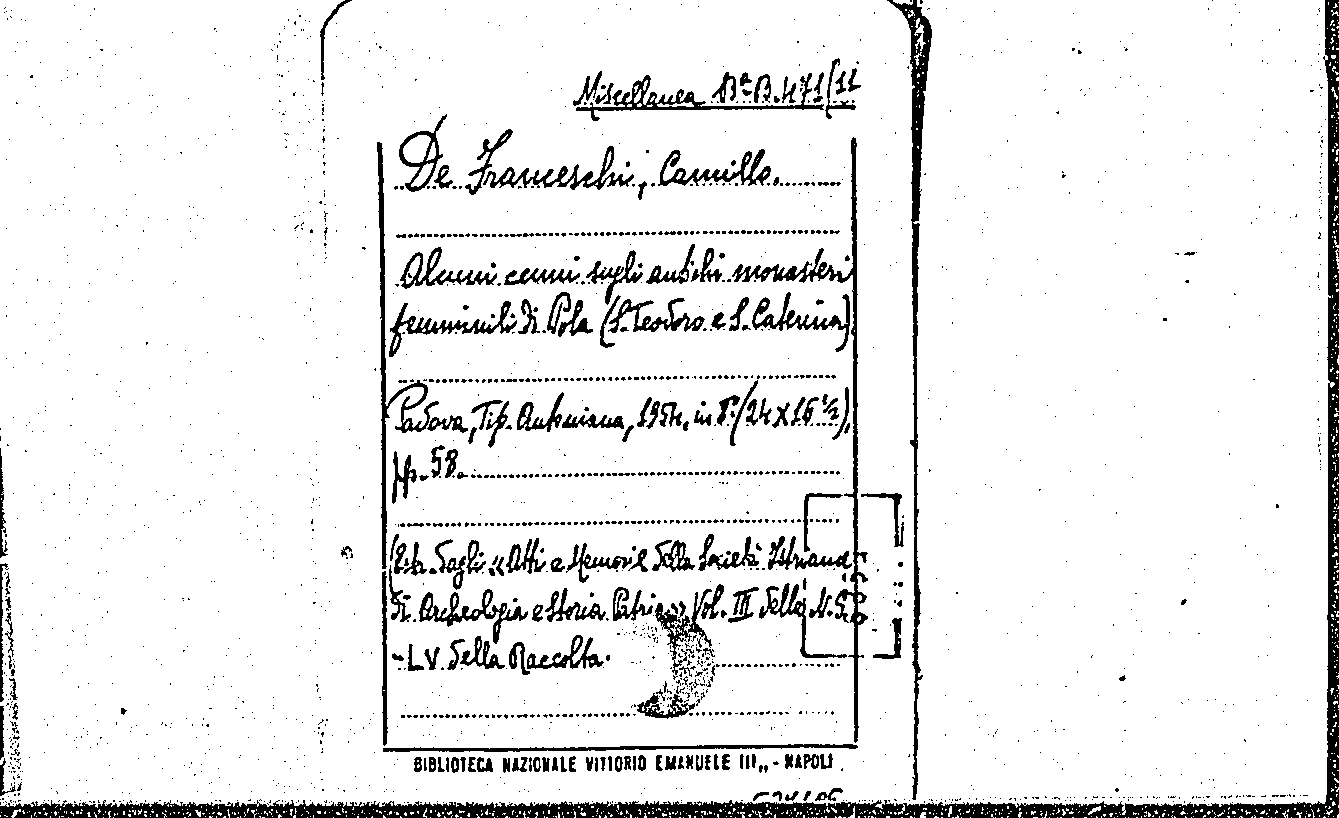 Miscellanea Bª B.471/11
De Franceschi, Camillo.
Alcuni cenni sugli antichi monasteri
femminili di Pola (S. Teodoro e S. Caterina)
Padova, Tip. Antoniana, 1954, in 8° (24 x 16 ½),
pp. 58.
(Estr. dagli «Atti e Memorie della Società Istriana
di Archeologia e Storia Patria» Vol. III della N.S.
- LV della Raccolta.
BIBLIOTECA NAZIONALE VITTORIO EMANUELE III„ - NAPOLI